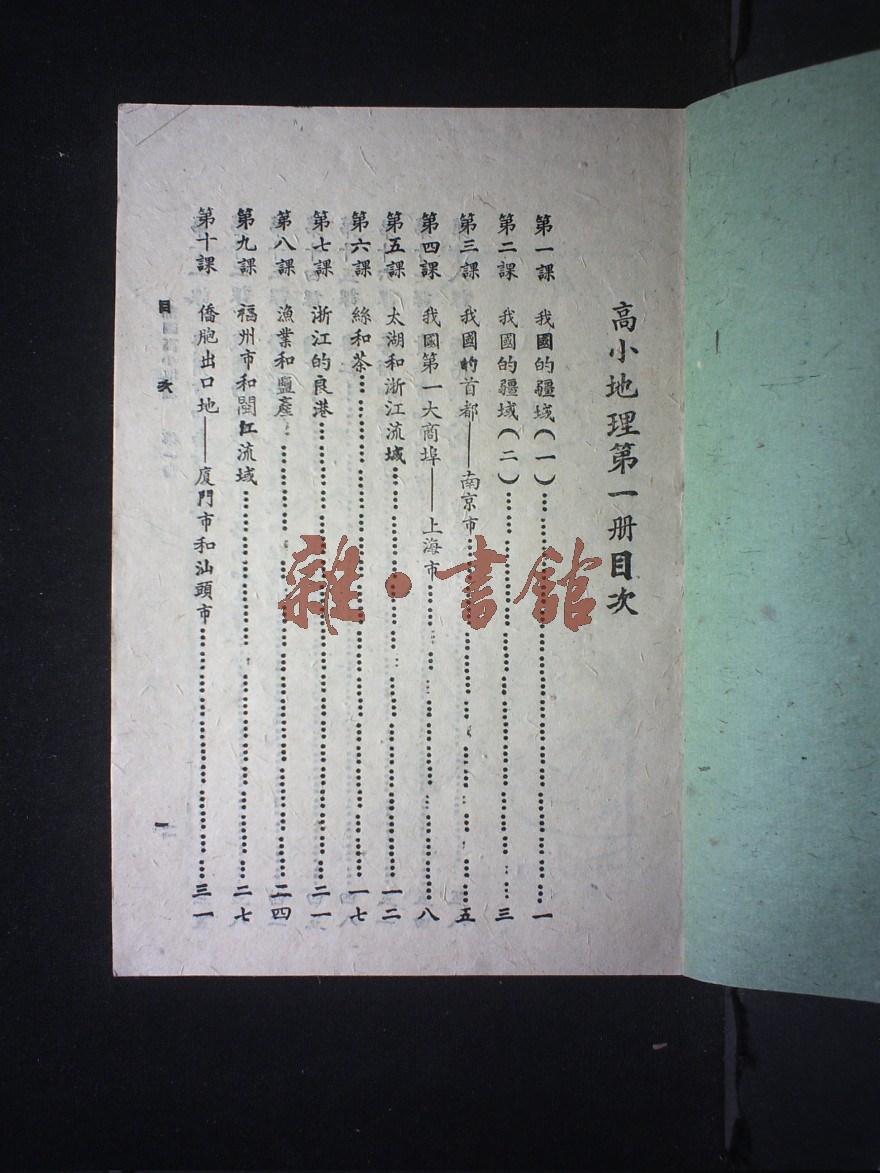 高小地理第一册目次
第一課 我國的疆域(一)……一
第二課 我國的疆域(二)……三
第三課 我國的首都——南京市……五
第四課 我國第一大商埠——上海市……八
第五課 太湖和浙江流域……一二
第六課 絲和茶……一七
第七課 浙江的良港……二一
第八課 漁業和鹽產……二四
第九課 福州市和閩江流域……二七
第十課 僑胞出口地——廈門市和汕頭市……三一
目次
一
雜·書館